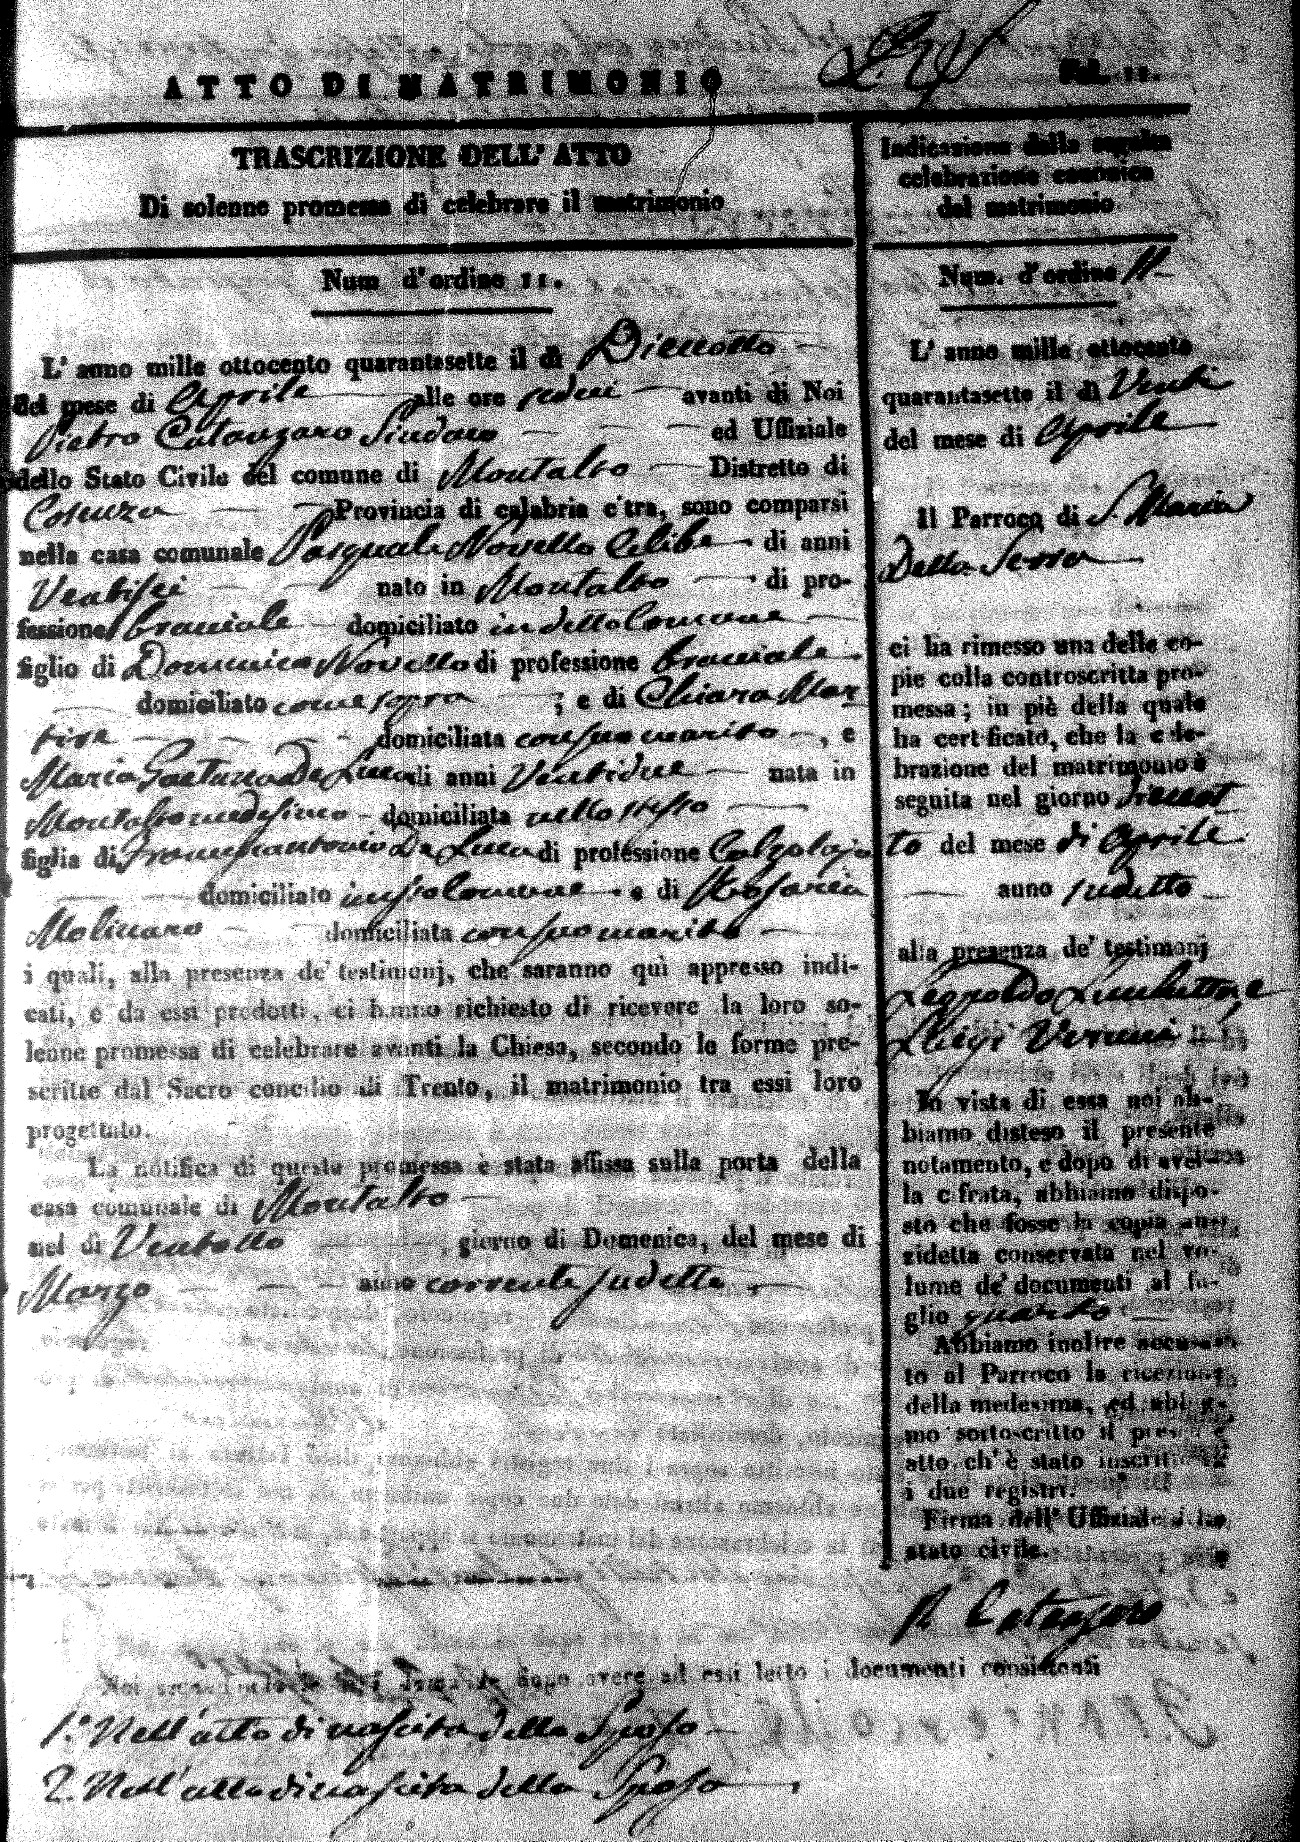 ATTO DI MATRIMONIO
Fol. 11.
TRASCRIZIONE DELL' ATTO
Di solenne promessa di celebrare il matrimonio
Num d'ordine 11.
L' anno mille ottocento quarantasette il dì Dieciotto
del mese di Aprile alle ore sedici avanti di Noi
Pietro Catanzaro Sindaco ed Uffiziale
dello Stato Civile del comune di Montalto Distretto di
Cosenza Provincia di calabria c'tra, sono comparsi
nella casa comunale Pasquale Novello Celibe di anni
Ventisei nato in Montalto di pro-
fessione bracciale domiciliato in detto Comune
figlio di Domenico Novello di professione bracciale
domiciliato come sopra ; e di Chiara Mar
tire domiciliata con suo marito , e
Maria Gaetana De Luca di anni Ventidue nata in
Montalto medesimo domiciliata nello stesso
figlia di Francescantonio De Luca di professione Calzolajo
domiciliato in esso Comune e di Rosaria
Molinaro domiciliata con suo marito
i quali, alla presenza de' testimonj, che saranno quì appresso indi-
cati, e da essi prodotti, ci hanno richiesto di ricevere la loro so-
lenne promessa di celebrare avanti la Chiesa, secondo le forme pre-
scritte dal Sacro concilio di Trento, il matrimonio tra essi loro
progettato.
La notifica di questa promessa è stata affissa sulla porta della
casa comunale di Montalto
nel dì Ventotto , giorno di Domenica, del mese di
Marzo anno corrente sudetto
Indicazione della seguita
celebrazione canonica
del matrimonio
Num. d'ordine 11
L' anno mille ottocento
quarantasette il dì Venti
del mese di Aprile
Il Parroco di S. Maria
Della Serra
ci ha rimesso una delle co-
pie colla controscritta pro-
messa; in piè della quale
ha certificato, che la cele-
brazione del matrimonio è
seguita nel giorno
to del mese di Aprile
anno sudetto
alla presenza de' testimonj
Leopoldo e
Luigi
In vista di essa noi ab-
biamo disteso il presente
notamento, e dopo di aver-
la cifrata, abbiamo dispo-
sto che fosse la copia an-
zidetta conservata nel vo-
lume de' documenti al fo-
glio quarto
Abbiamo inoltre accusa-
to al Parroco la ricezione
della medesima, ed abbia-
mo sottoscritto il presente
atto ch' è stato inscritto
i due registri.
Firma dell' Uffiziale dello
stato civile.
P. Catanzaro
Noi dopo avere ad essi letto i documenti consistenti
1.° Nell'atto di nascita dello Sposo
2. Nell'atto di nascita della Sposa